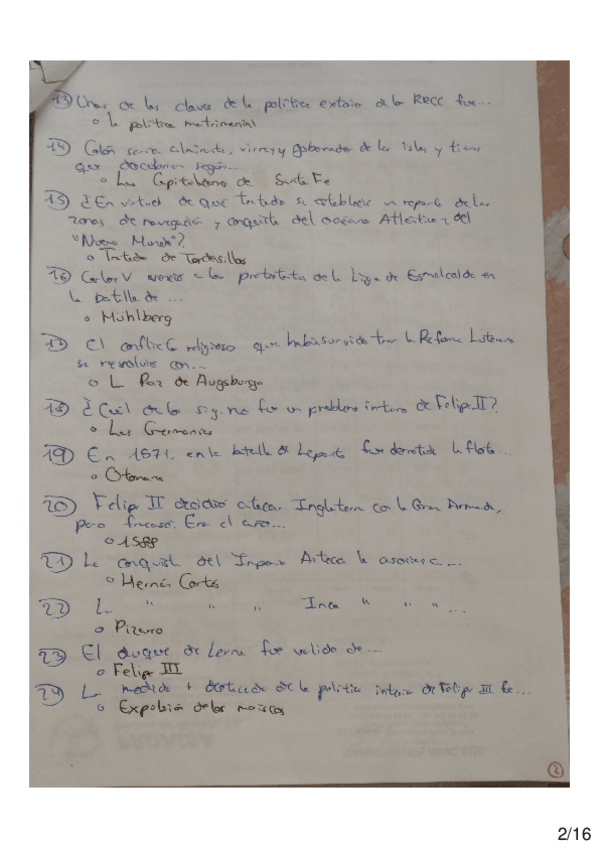 13) Unas de las claves de la política exterior de los RRCC fue...
o La política matrimonial
14) Colón sería almirante, virrey y gobernador de las islas y tierras
que descubriera según...
o Las Capitulaciones de Santa Fe
15) ¿En virtud de que tratado se establecía un reparto de las
zonas de navegación y conquista del océano Atlántico y del
"Nuevo Mundo"?
o Tratado de Tordesillas
16) Carlos V venció a los protestantes de la Liga de Esmalcalda en
la batalla de ...
o Mühlberg
17) El conflicto religioso que había surgido tras la Reforma Luterana
se resolvió con...
o La Paz de Augsburgo
18) ¿Cuál de los sig. no fue un problema interno de Felipe II?
o Las Germanías
19) En 1571, en la batalla de Lepanto fue derrotada la flota...
o Otomana
20) Felipe II decidió atacar Inglaterra con la Gran Armada,
pero fracasó. Era el año...
o 1588
21) La conquista del Imperio Azteca la asocias a ...
o Hernán Cortés
22) L. " " " Inca " " " ...
o Pizarro
23) El duque de Lerma fue valido de ...
o Felipe III
24) La medida + destacada de la política interior de Felipe III fue...
o Expulsión de los moriscos
2
2/16